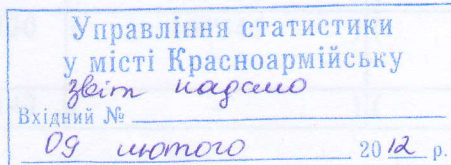 Управління статистики
у місті Красноармійську
звіт надано
Вхідний №
09 лютого 2012 р.